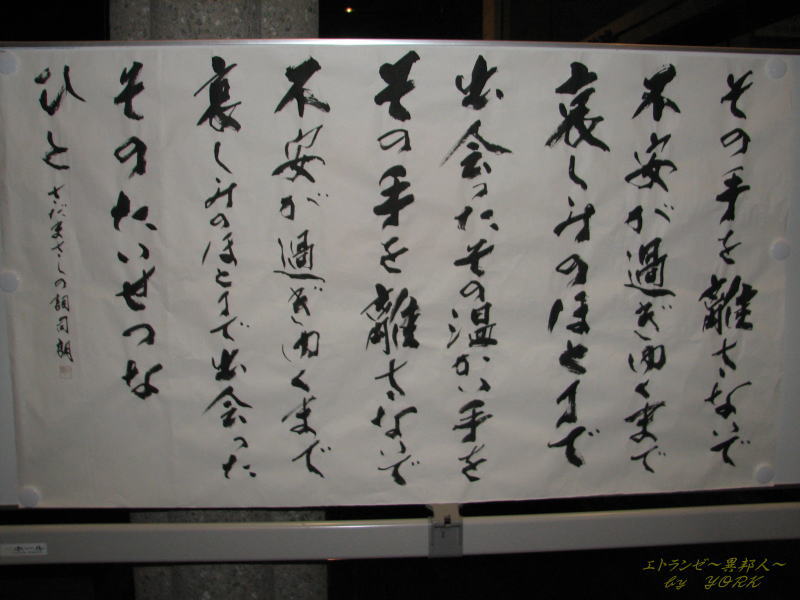 その手を離さないで
不安が過ぎゆくまで
哀しみのほとりで
出会ったその温かい手を
その手を離さないで
不安が過ぎゆくまで
哀しみのほとりで出会った
そのたいせつな
ひと さだまさしの詞 司朗
ホール
エトランゼ～異邦人～
by YORK